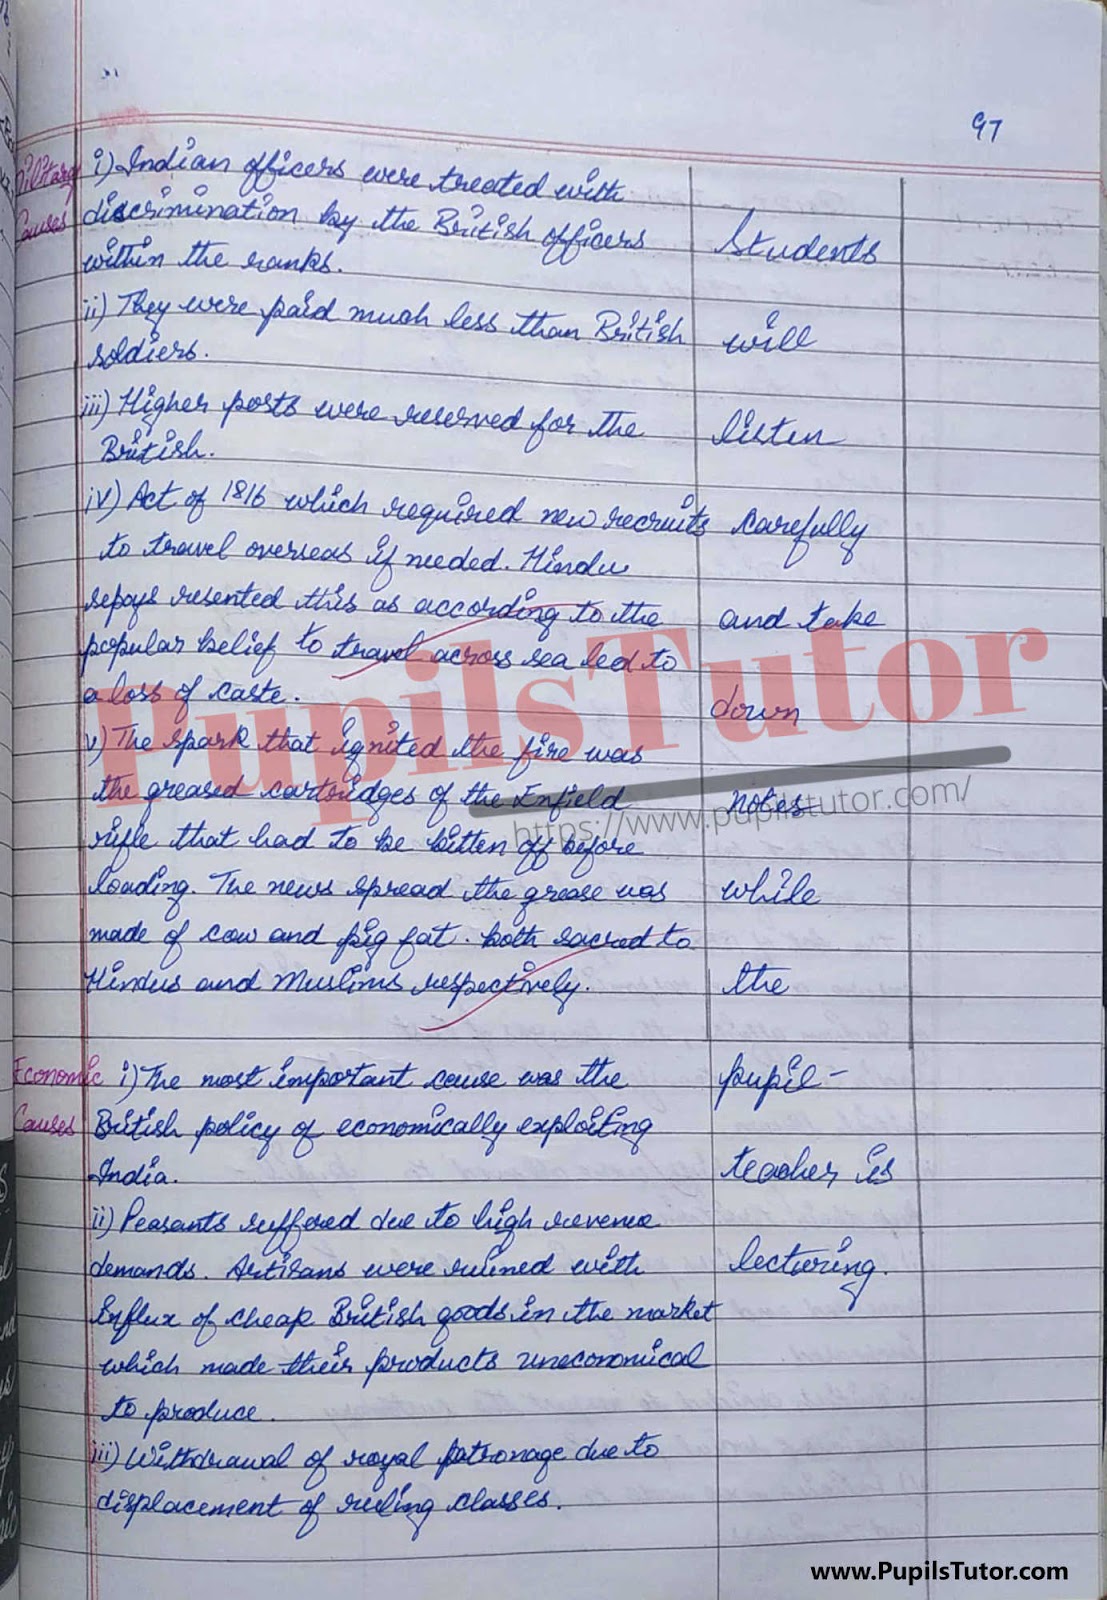 97
Military
Causes
i) Indian officers were treated with
discrimination by the British officers
within the ranks.
ii) They were paid much less than British
soldiers.
iii) Higher posts were reserved for the
British.
iv) Act of 1816 which required new recruits
to travel overseas if needed. Hindu
sepoys resented this as according to the
popular belief to travel across sea led to
a loss of caste.
v) The spark that ignited the fire was
the greased cartridges of the Enfield
rifle that had to be bitten off before
loading. The news spread the grease was
made of cow and pig fat. both sacred to
Hindus and Muslims respectively.
Economic
Causes
i) The most important cause was the
British policy of economically exploiting
India.
ii) Peasants suffered due to high revenue
demands. Artisans were ruined with
influx of cheap British goods in the market
which made their products uneconomical
to produce.
iii) Withdrawal of royal patronage due to
displacement of ruling classes.
Students
will
listen
carefully
and take
down
notes
while
the
pupil-
teacher is
lecturing.
PupilsTutor
https://www.pupilstutor.com/
www.PupilsTutor.com